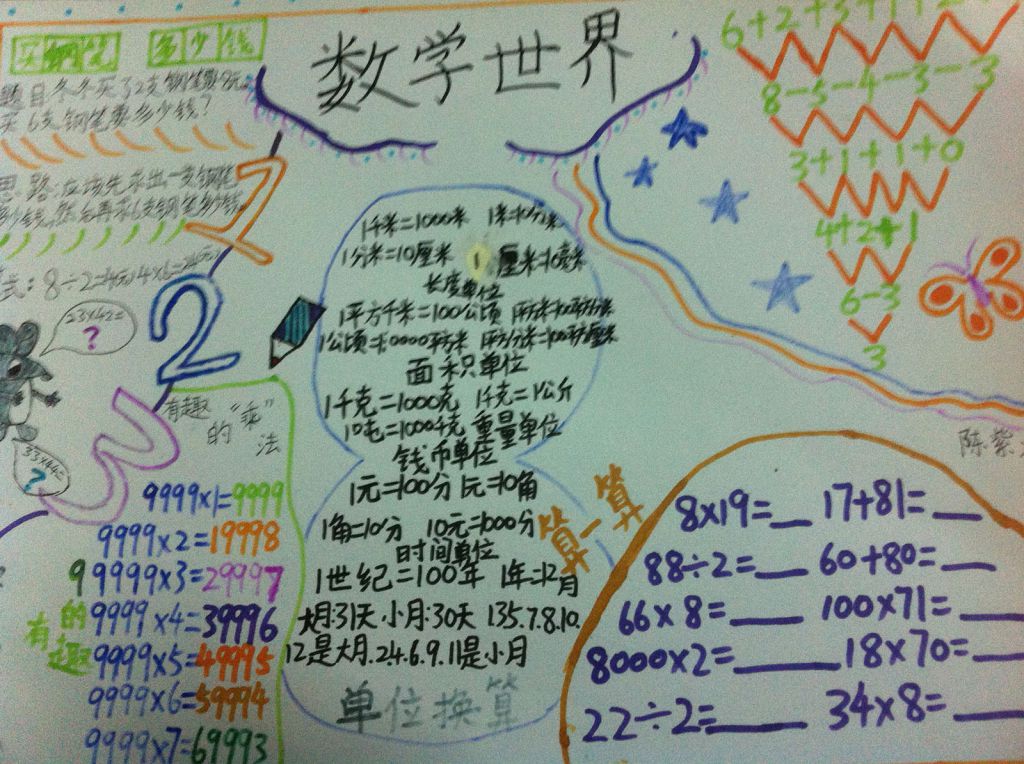 数学世界
买钢笔 多少钱
题目:冬冬买了2支钢笔要8元。
买6支钢笔要多少钱?
思路:应该先求出一支钢笔
多少钱,然后再求6支钢笔多少钱。
式:8÷2=4(元)4×6=24(元)
1
2
3
23×42=
?
33×44=
?
有趣
的
“乘”
法
9999×1=9999
9999×2=19998
9999×3=29997
9999×4=39996
9999×5=49995
9999×6=59994
9999×7=69993
有趣的9
1千米=1000米 1米=10分米
1分米=10厘米 1厘米=10毫米
长度单位
1平方千米=100公顷 1平方米=100平方分米
1公顷=10000平方米 1平方分米=100平方厘米
面积单位
1千克=1000克 1千克=1公斤
10吨=1000千克 重量单位
钱币单位
1元=100分 1元=10角
1角=10分 10元=1000分
时间单位
1世纪=100年 1年=12月
大月:31天.小月:30天 1.3.5.7.8.10.
12是大月.2.4.6.9.11是小月
单位换算
6+2+3+1+2
8-5-4-3-3
3+1+1+0
4+2+1
6-3
3
陈紫
算一算
8×19=__ 17+81=__
88÷2=__ 60+80=__
66×8=__ 100×71=__
8000×2=__ 18×70=__
22÷2=__ 34×8=__